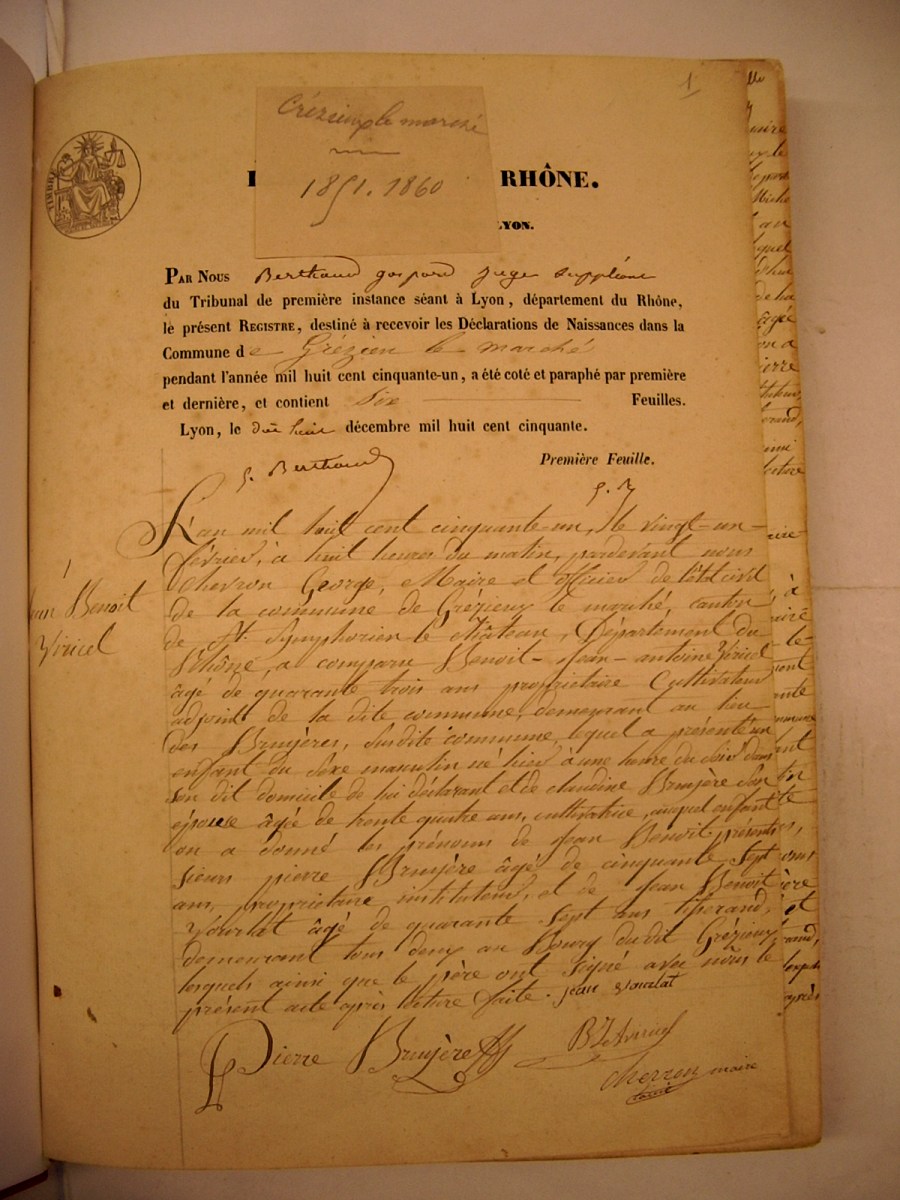 1
Grézieux le marché
1851. 1860
RHÔNE.
LYON.
TIMBRE
PAR NOUS Berthaud gaspard juge suppléant
du Tribunal de première instance séant à Lyon, département du Rhône,
le présent REGISTRE, destiné à recevoir les Déclarations de Naissances dans la
Commune de Grézieu le marché
pendant l'année mil huit cent cinquante-un, a été coté et paraphé par première
et dernière, et contient Six Feuilles.
Lyon, le dix huit décembre mil huit cent cinquante.
Première Feuille.
G. Berthaud
1
Jean Benoit
Viricel
L'an mil huit cent cinquante-un, le vingt-un
février, à huit heures du matin, pardevant nous
Chevron George, Maire et officier de l'état civil
de la commune de Grézieux le marché, canton
de St. Symphorien le Château, Département du
Rhône, a comparu Benoit-Jean-antoine Viricel
âgé de quarante trois ans propriétaire Cultivateur
adjoint de la dite commune, demeurant au lieu
des Bruyères, susdite commune, lequel a présenté un
enfant du sexe masculin né hier à une heure du soir dans
son dit domicile de lui déclarant et de claudine Bruyère son
épouse âgée de trente quatre ans, cultivatrice, auquel enfant
on a donné les prénoms de Jean Benoit, présents
sieurs pierre Bruyère âgé de cinquante sept
ans, propriétaire instituteur, et de Jean Benoit
Vourlat âgé de quarante sept ans tisserand,
demeurant tous deux au Bourg dudit Grézieux
lesquels ainsi que le père ont signé avec nous le
présent acte après lecture faite. jean vourlat
Pierre Bruyère
Chevron maire